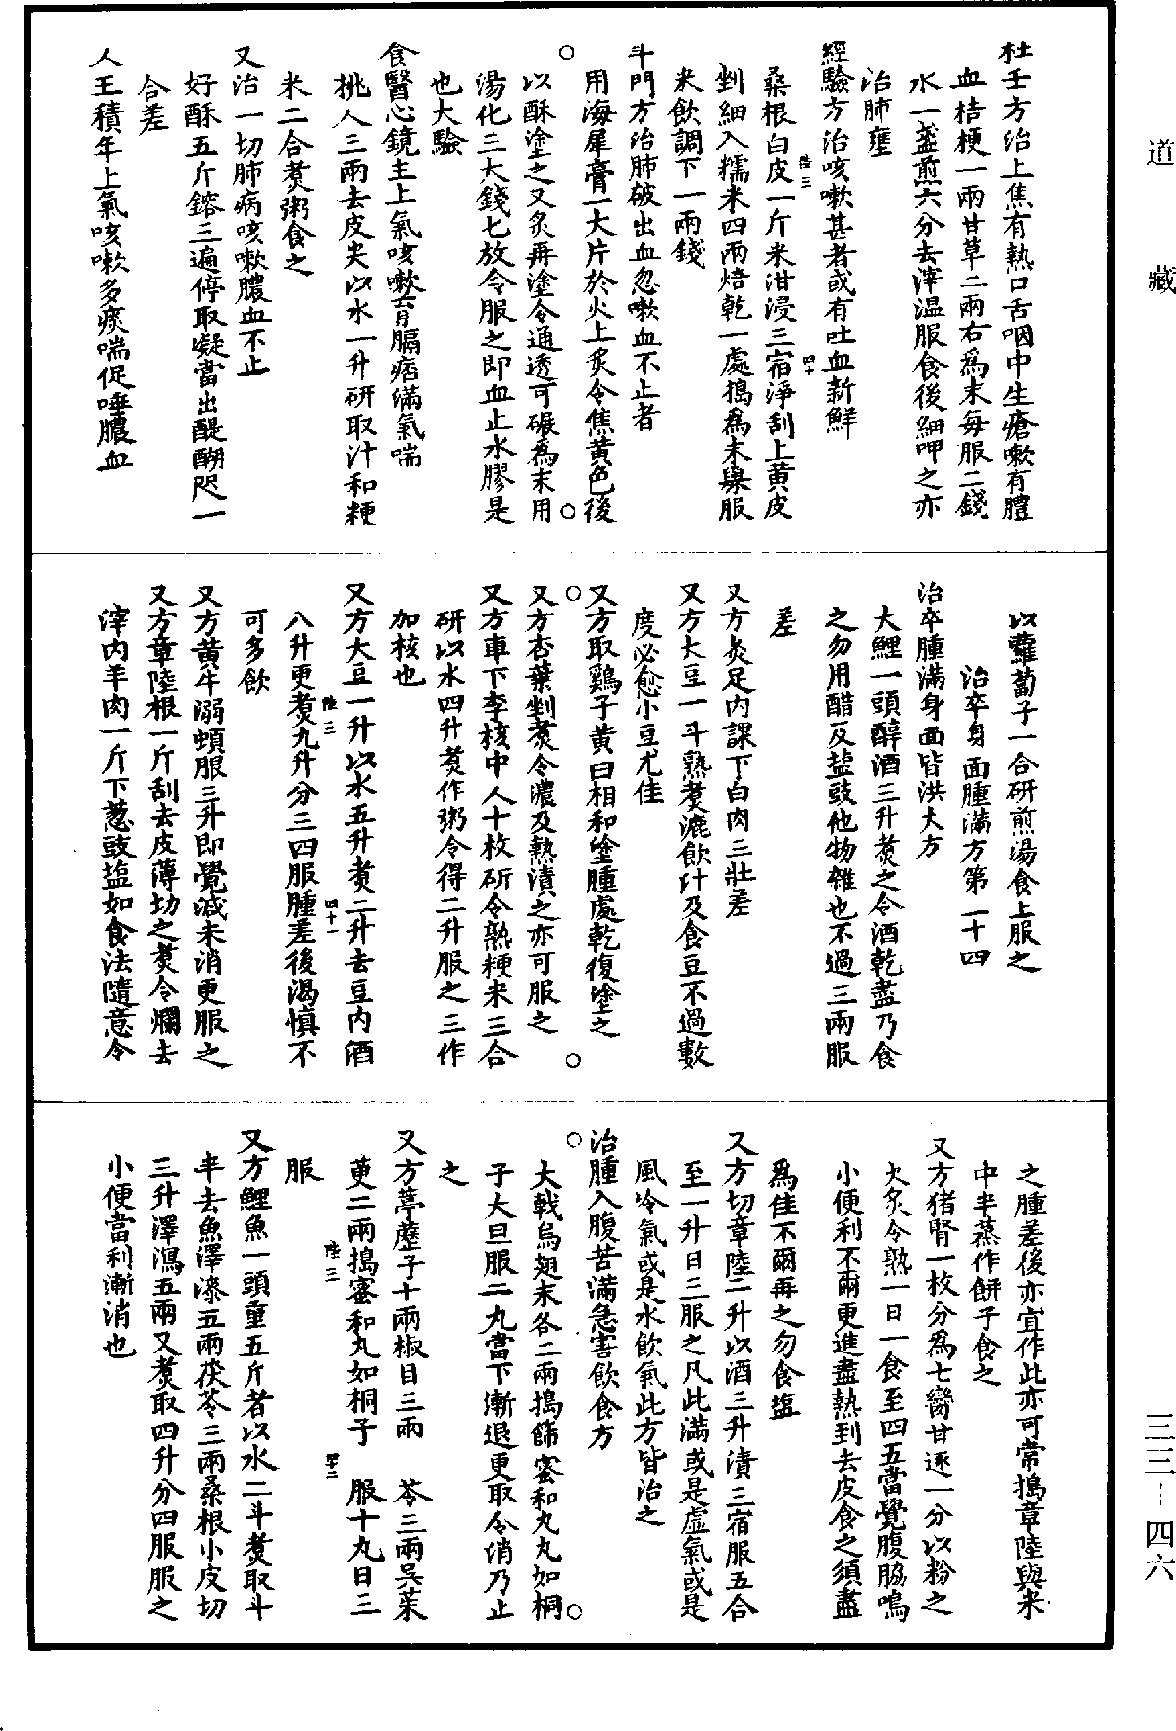 道藏
杜壬方治上焦有熱口舌咽中生瘡嗽有膿
血桔梗一兩甘草二兩右爲末每服二錢
水一盞煎六分去滓溫服食後細呷之亦
治肺壅
經驗方治咳嗽甚者或有吐血新鮮
桑根白皮一斤米泔浸三宿淨刮上黄皮
陸三
四十
剉細入糯米四兩焙乾一處搗爲末每服
米飲調下一兩錢
斗門方治肺破出血忽嗽血不止者
用海犀膏一大片於火上炙令焦黄色後
以酥塗之又炙再塗令通透可碾爲末用
湯化三大錢匕放令服之即血止水膠是
也大驗
食醫心鏡主上氣咳嗽胷膈痞滿氣喘
桃人三兩去皮尖以水一升研取汁和粳
米二合煑粥食之
又治一切肺病咳嗽膿血不止
好酥五斤鎔三遍停取凝當出醍醐呎一
合差
人王積年上氣咳嗽多痰喘促唾膿血
以蘿蔔子一合研煎湯食上服之
治卒身面腫滿方第二十四
治卒腫滿身面皆洪大方
大鯉一頭醇酒三升煑之令酒乾盡乃食
之勿用醋及鹽豉他物雜也不過三兩服
差
又方灸足内踝下白肉三壯差
又方大豆一斗熟煑漉飲汁及食豆不過數
度必愈小豆尤佳
又方取鷄子黄白相和塗腫處乾復塗之
又方杏葉剉煑令濃及熱漬之亦可服之
又方車下李核中人十枚研令熟粳米三合
研以水四升煑作粥令得二升服之三作
加核也
又方大豆一升以水五升煑二升去豆内酒
陸三
四十一
八升更煑九升分三四服腫差後渴慎不
可多飲
又方黄牛溺頓服三升即覺減未消更服之
又方章陸根一斤刮去皮薄切之煑令爛去
滓内羊肉一斤下葱豉塩如食法隨意令
之腫差後亦宜作此亦可常搗章陸與米
中半蒸作餅子食之
又方猪腎一枚分爲七臠甘遂一分以粉之
火炙令熟一日一食至四五當覺腹脇鳴
小便利不爾更進盡熟到去皮食之須盡
爲佳不爾再之勿食塩
又方切章陸二升以酒三升漬三宿服五合
至一升日三服之凡此滿或是虛氣或是
風冷氣或是水飲氣此方皆治之
治腫入腹苦滿急害飲食方
大戟烏翅末各二兩搗篩蜜和丸丸如桐
子大旦服二丸當下漸退更取令消乃止
之
又方葶藶子十兩椒目三兩 苓三兩吳茱
萸二兩搗蜜和丸如桐子 服十丸日三
陸三
四十二
服
又方鯉魚一頭重五斤者以水二斗煑取斗
半去魚澤漆五兩茯苓三兩桑根小皮切
三升澤瀉五兩又煑取四升分四服服之
小便當利漸消也
三三-四六